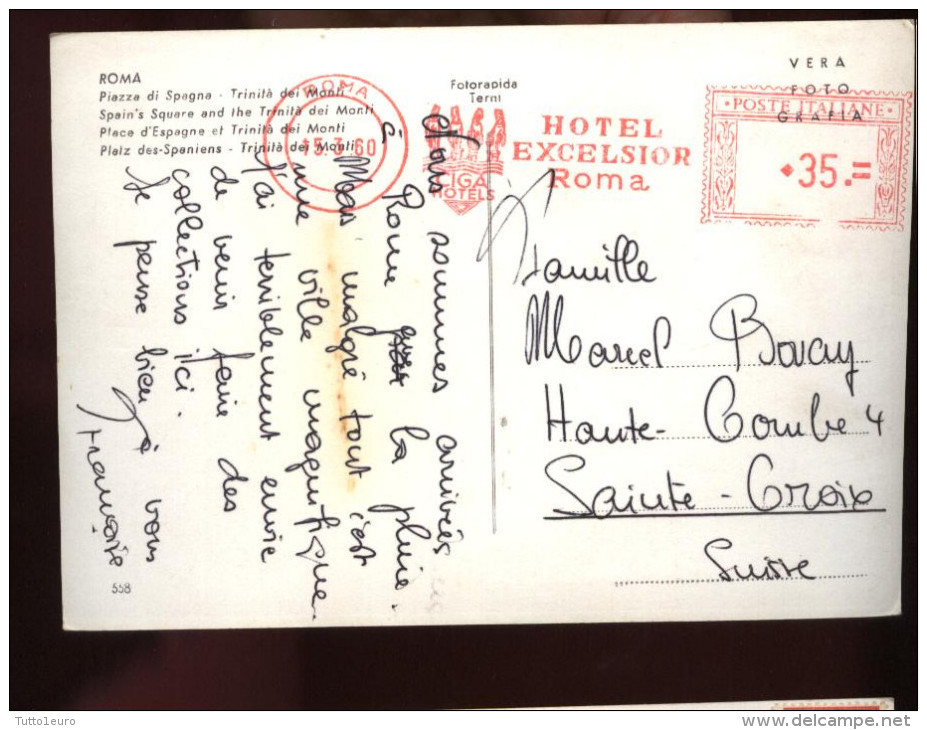 ROMA
Piazza di Spagna - Trinità dei Monti
Spain's Square and the Trinità dei Monti
Place d'Espagne et Trinità dei Monti
Platz des-Spaniens - Trinità dei Monti
ROMA
15.3.60
Fotorapida
Terni
CIGA
HOTELS
HOTEL
EXCELSIOR
Roma
VERA
FOTO
GRAFIA
POSTE ITALIANE
35.=
Nous sommes arrivés
à Rome avec la pluie.
Mais malgré tout c'est
une ville magnifique.
J'ai terriblement envie
de venir faire des
collections ici.
Je pense bien à vous
Françoise
Famille
Marcel Bovay
Haute-Combe 4
Sainte-Croix
Suisse
558
Tutto1euro
www.delcampe.net